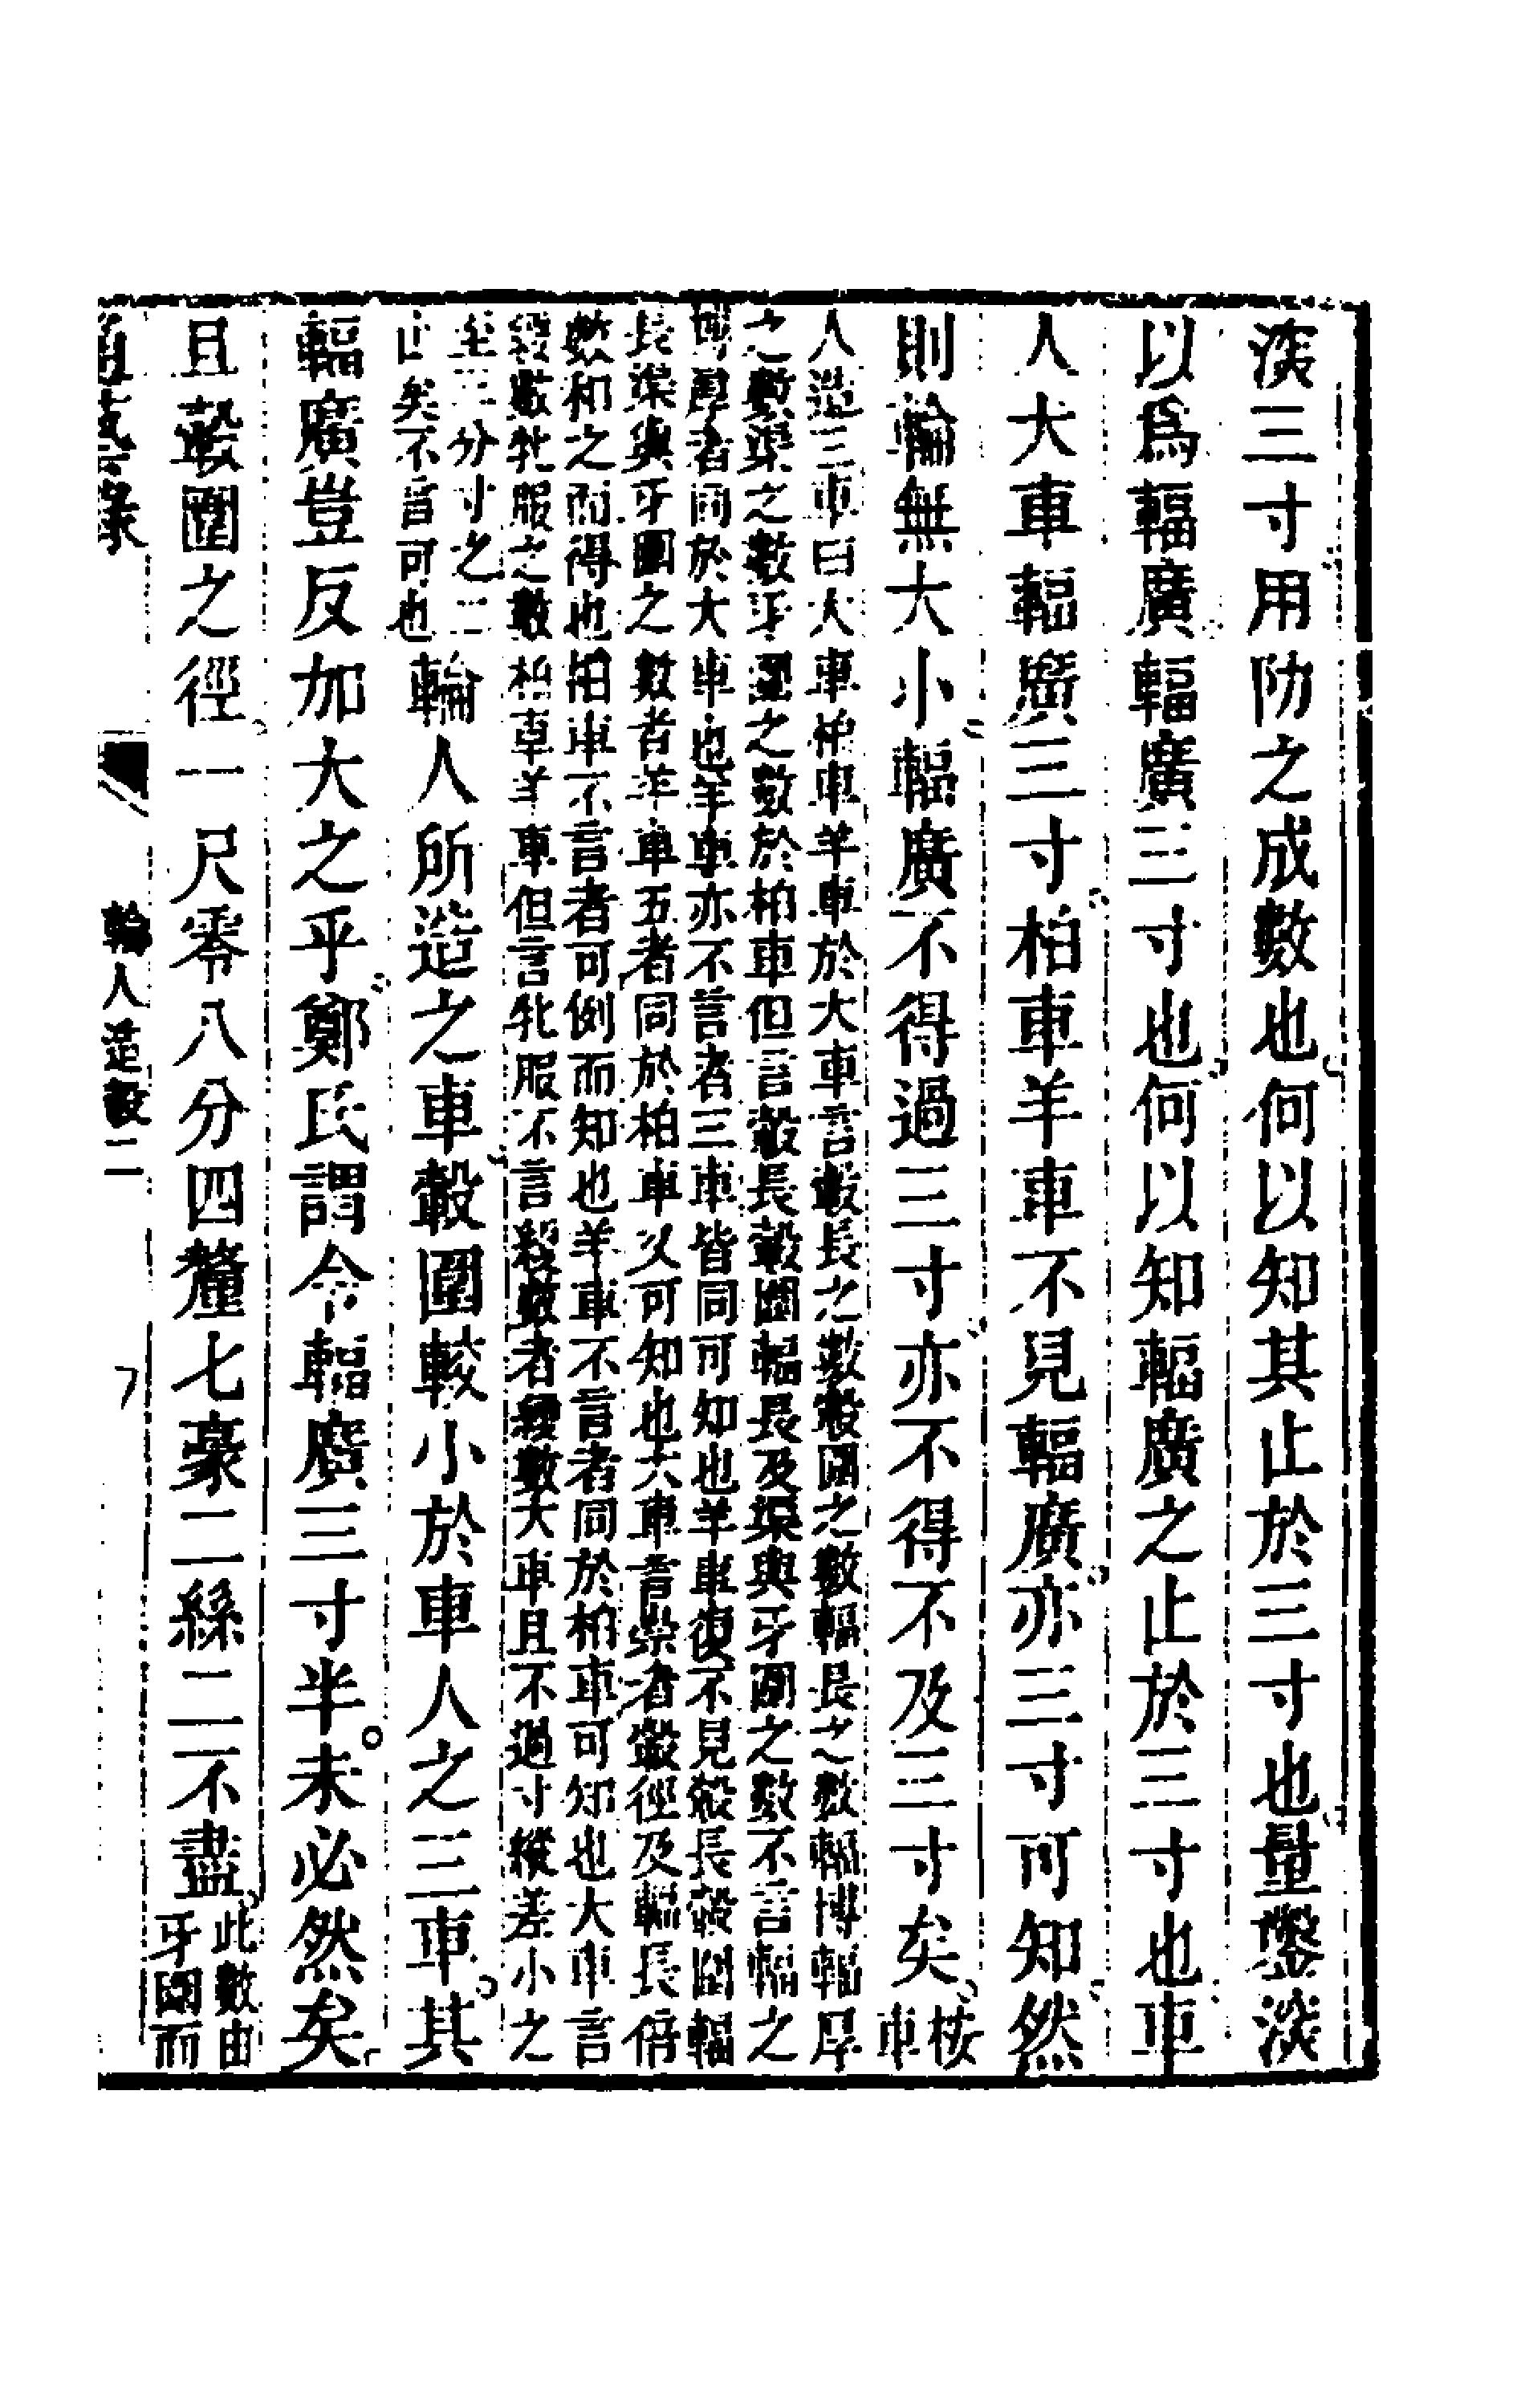 深三寸用阞之成數也何以知其止於三寸也量鑿深
以爲輻廣輻廣三寸也何以知輻廣之止於三寸也車
人大車輻廣三寸柏車羊車不見輻廣亦三寸可知然
則輪無大小輻廣不得過三寸亦不得不及三寸矣桉車
人造三車曰大車柏車羊車於大車言轂長之數轂圍之數輻長之數輻博輻厚
之數渠之數牙圍之數於柏車但言轂長轂圍輻長及渠與牙圍之數不言輻之
博厚者同於大車也羊車亦不言者三車皆同可知也羊車復不見轂長轂圍輻
長渠與牙圍之數者羊車五者同於柏車又可知也大車言崇者轂徑及輻長倍
數和之而得也柏車不言者可例而知也羊車不言者同於柏車可知也大車言
綆數牝服之數柏車羊車但言牝服不言綆數者綆數大車且不過寸縱差小之
至三分寸之二
止矣不言可也
輪人所造之車轂圍較小於車人之三車其
輻廣豈反加大之乎鄭氏謂令輻廣三寸半未必然矣
且轂圍之徑一尺零八分四釐七豪二絲二不盡此數由
牙圍而
通藝錄
輪人造轂二